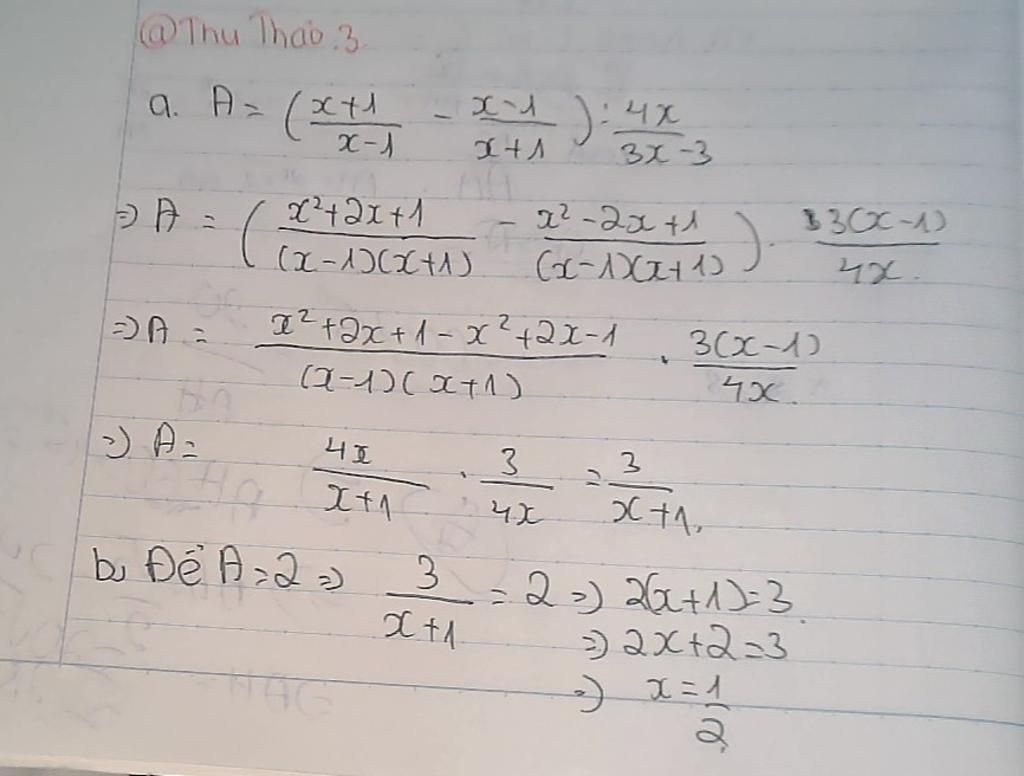 @Thu Thảo.3
a. A = (x+1/x-1 - x-1/x+1) : 4x/3x-3
=> A = (x²+2x+1/(x-1)(x+1) - x²-2x+1/(x-1)(x+1)) . 3(x-1)/4x.
=> A = x²+2x+1-x²+2x-1/(x-1)(x+1) . 3(x-1)/4x.
=> A = 4x/x+1 . 3/4x = 3/x+1.
b, Để A=2 => 3/x+1 = 2 => 2(x+1)=3.
=> 2x+2=3
=> x=1/2